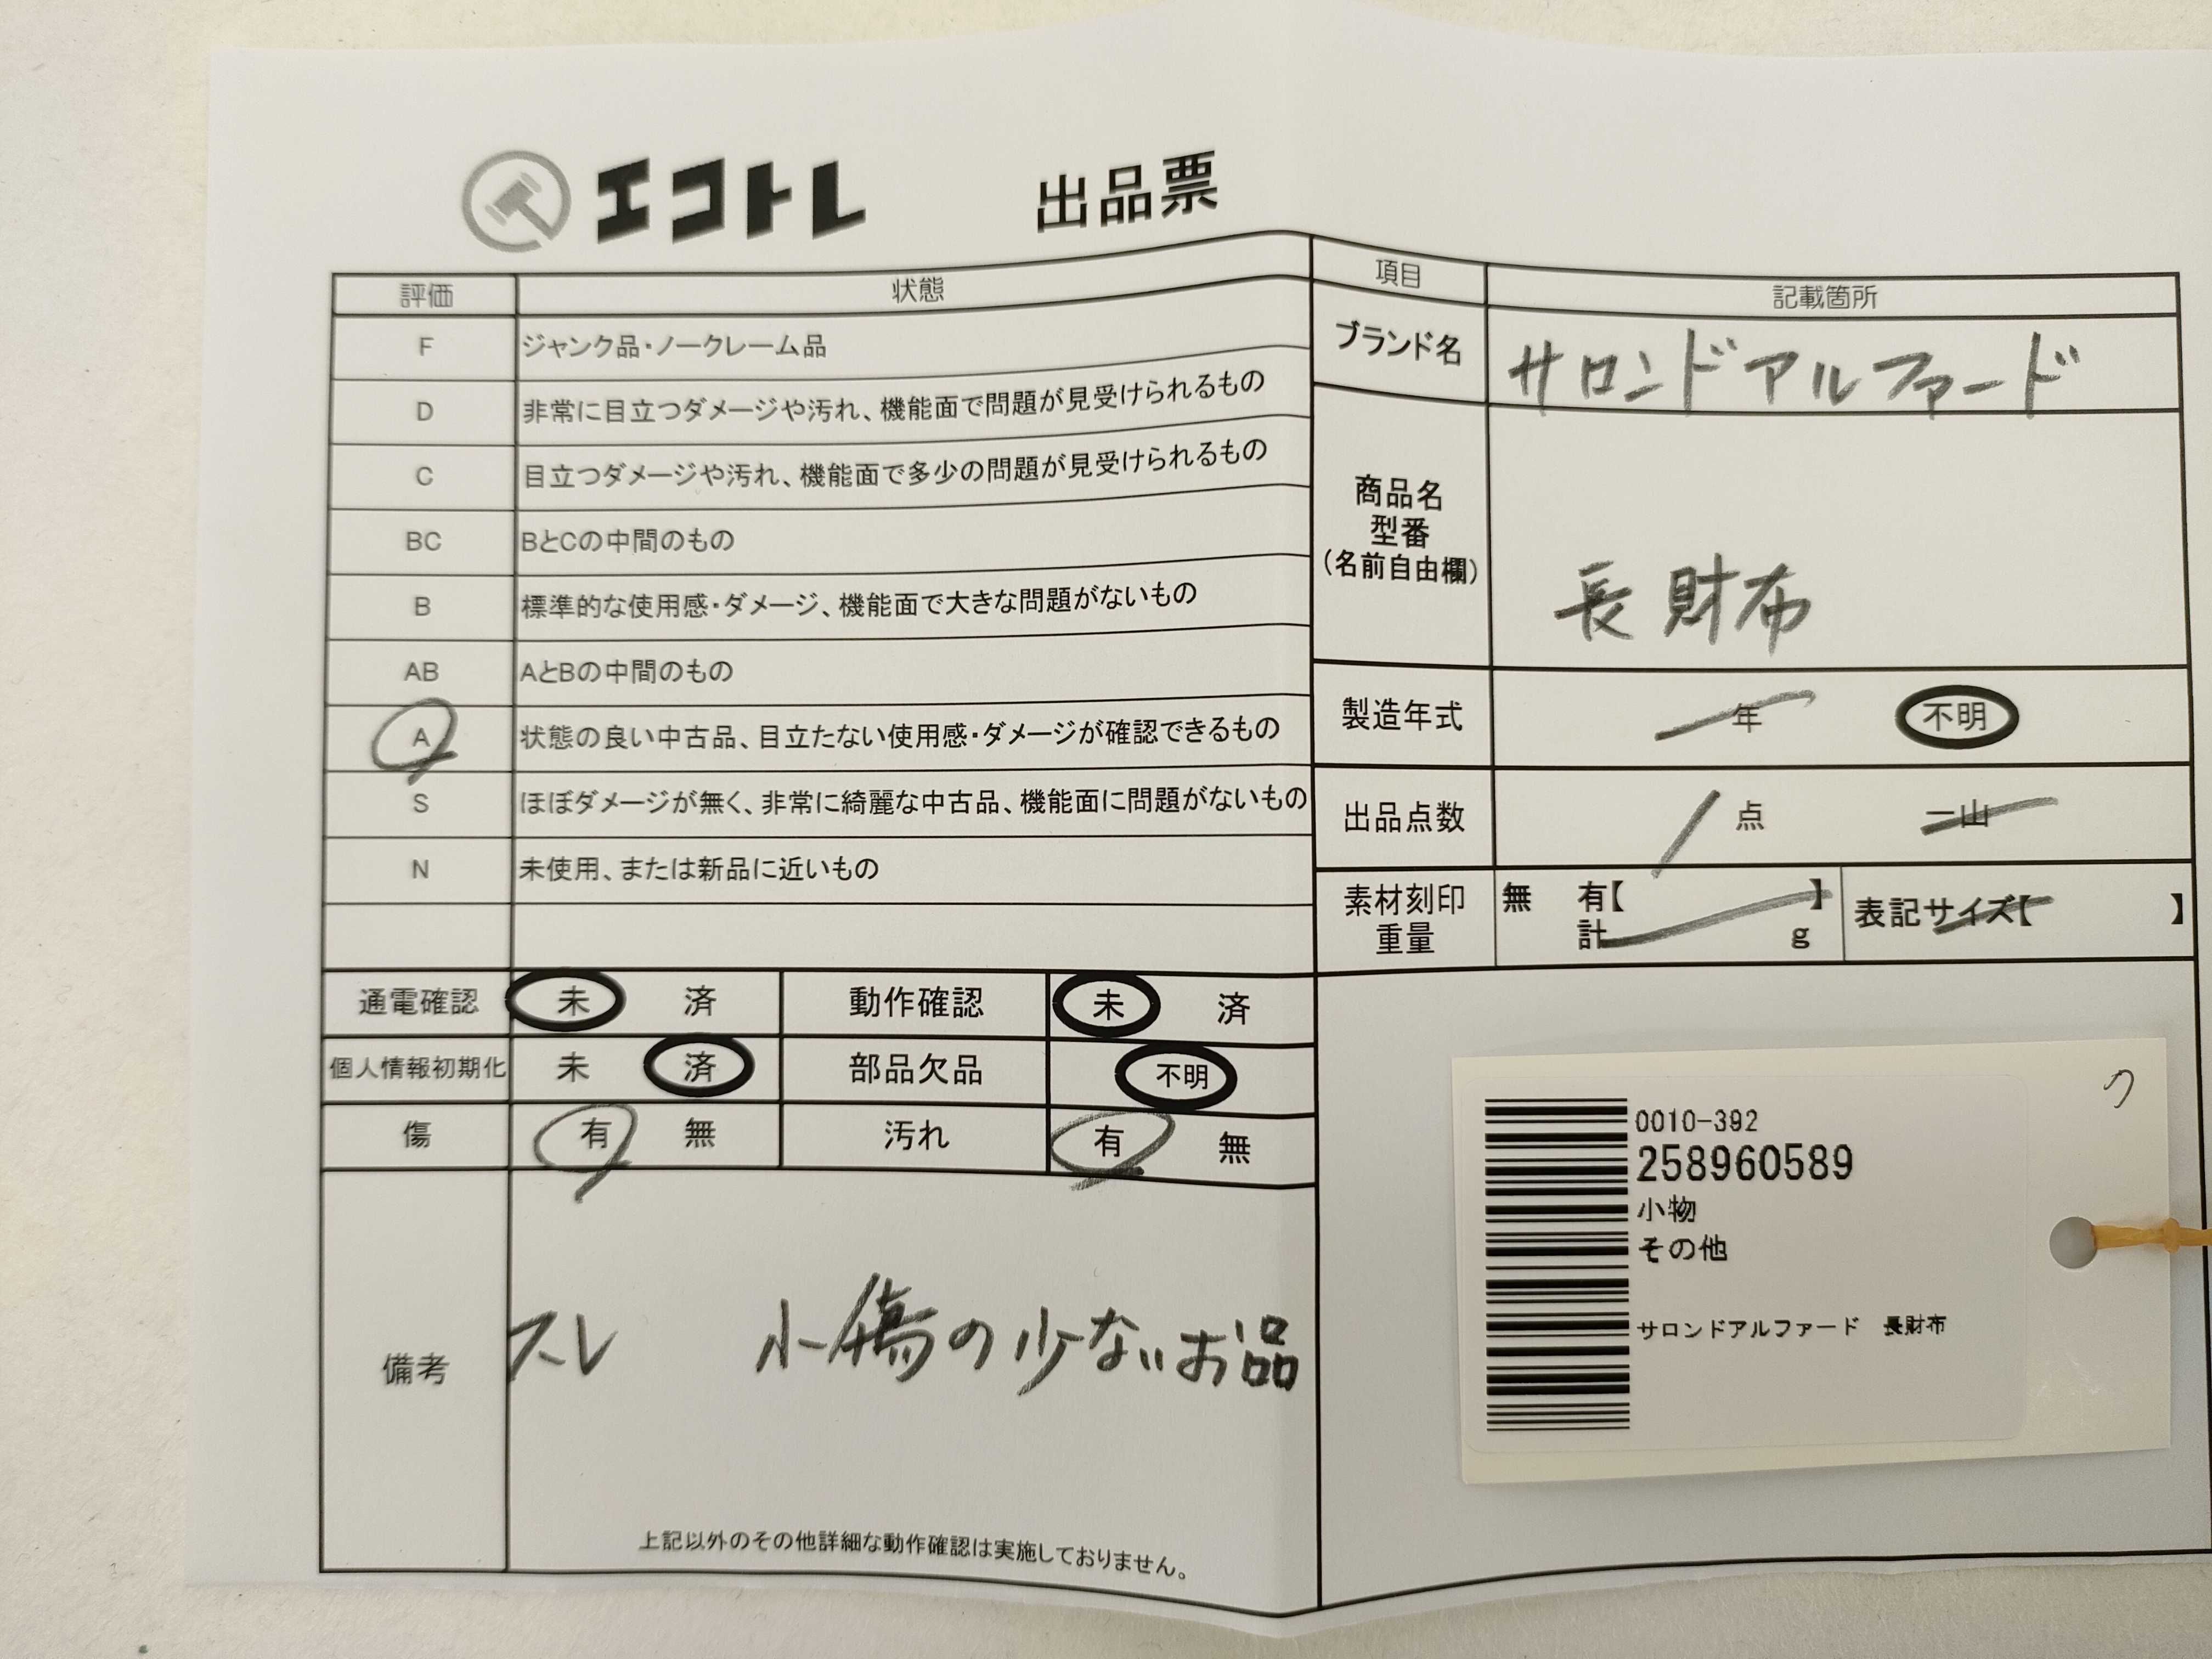 エコトレ 出品票
評価 状態
F ジャンク品・ノークレーム品
D 非常に目立つダメージや汚れ、機能面で問題が見受けられるもの
C 目立つダメージや汚れ、機能面で多少の問題が見受けられるもの
BC BとCの中間のもの
B 標準的な使用感・ダメージ、機能面で大きな問題がないもの
AB AとBの中間のもの
A 状態の良い中古品、目立たない使用感・ダメージが確認できるもの
S ほぼダメージが無く、非常に綺麗な中古品、機能面に問題がないもの
N 未使用、または新品に近いもの
通電確認 未 済 動作確認 未 済
個人情報初期化 未 済 部品欠品 不明
傷 有 無 汚れ 有 無
備考 スレ 小傷の少ないお品
上記以外のその他詳細な動作確認は実施しておりません。
項目 記載箇所
ブランド名 サロンドアルファード
商品名
型番
(名前自由欄)
長財布
製造年式 年 不明
出品点数 1点 一山
素材刻印 無 有【 】 表記サイズ【 】
重量 計 g
0010-392
258960589
小物
その他
サロンドアルファード 長財布